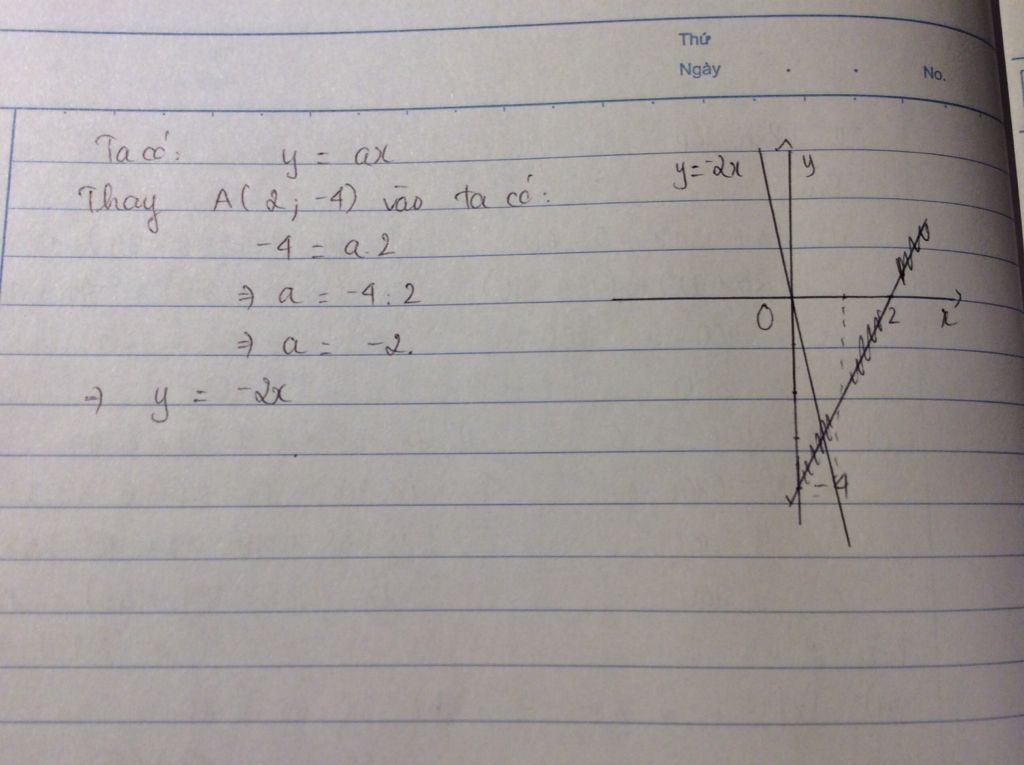 Thứ
Ngày . . No.
Ta có: y = ax
Thay A(2; -4) vào ta có:
-4 = a.2
⇒ a = -4 : 2
⇒ a = -2.
⇒ y = -2x
y=-2x y
O 2 x
-4